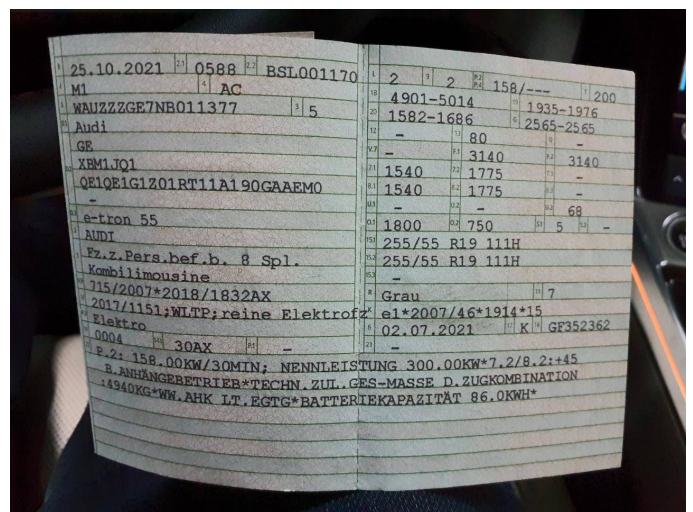 B 25.10.2021 2.1 0588 2.2 BSL001170
J M1 4 AC
E WAUZZZGE7NB011377 3 5
D.1 Audi
GE
D.2 XBM1JQ1
QE1QE1G1Z01RT11A190GAAEM0
-
D.3 e-tron 55
2 AUDI
5 Fz.z.Pers.bef.b. 8 Spl.
Kombilimousine
715/2007*2018/1832AX
2017/1151;WLTP;reine Elektrofz
Elektro
0004 14.1 30AX P.1 -
L 2 9 2 P.2 P.4 158/--- T 200
18 4901-5014 19 1935-1976
20 1582-1686 G 2565-2565
12 - 13 80 Q -
V.7 - F.1 3140 F.2 3140
7.1 1540 7.2 1775 7.3 -
8.1 1540 8.2 1775 8.3 -
U.1 - U.2 - U.3 68
O.1 1800 O.2 750 S.1 5 S.2 -
15.1 255/55 R19 111H
15.2 255/55 R19 111H
15.3 -
R Grau 11 7
K e1*2007/46*1914*15
6 02.07.2021 17 K 16 GF352362
21 -
22 P.2: 158.00KW/30MIN; NENNLEISTUNG 300.00KW*7.2/8.2:+45
B.ANHÄNGEBETRIEB*TECHN.ZUL.GES-MASSE D.ZUGKOMBINATION
:4940KG*WW.AHK LT.EGTG*BATTERIEKAPAZITÄT 86.0KWH*